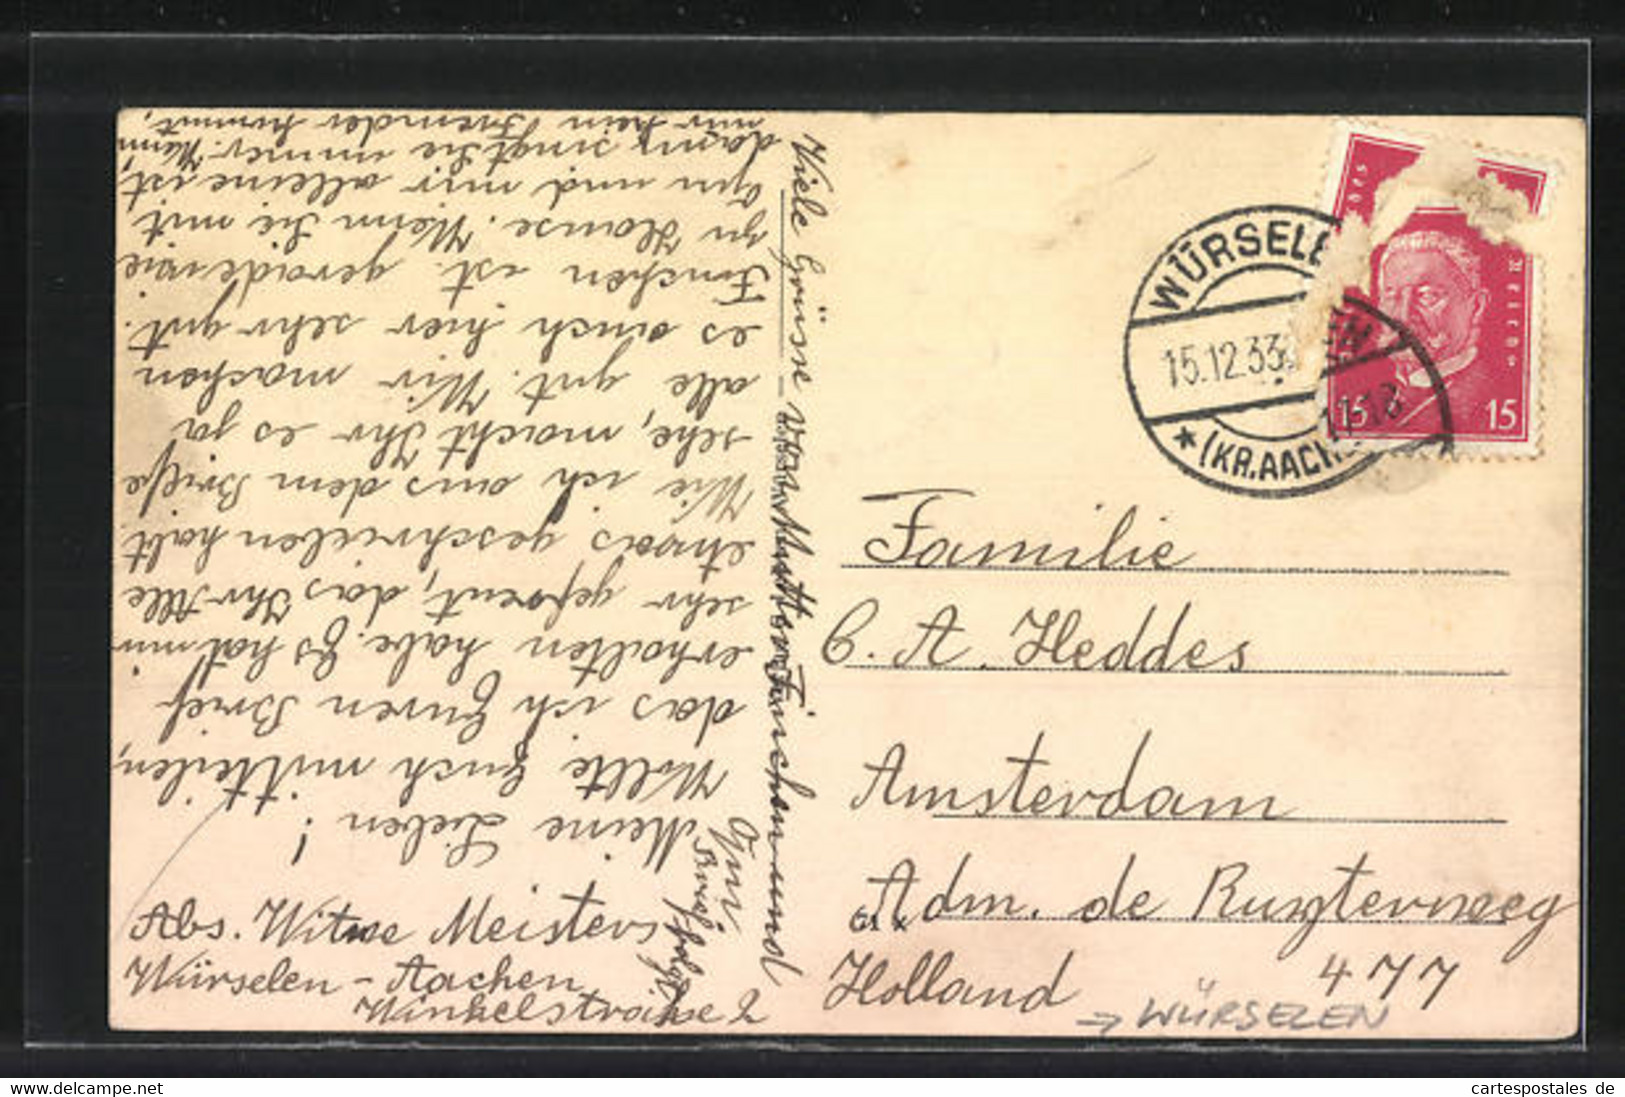 Meine Lieben!
Wollte Euch mitteilen,
das ich Euren Brief
erhalten habe. Es hat mir
sehr gefreut, das Ihr Alle
etwas geschrieben habt
Wie ich aus dem Briefe
sehe, macht Ihr es ja
alle gut. Wir machen
es auch hier sehr gut.
Finchen ist geradewie
zu Hause. Wenn Sie mit
und mir alleine ist,
dann singt Sie immer. Wenn
nur kein Fremder kommt.
Viele Grüsse von Muttern Finchen und
Brief folgt
Abs. Witwe Meisters
Würselen - Aachen
Winkelstraße 2
WÜRSELEN
15.12.33
(KR.AACH
Reich
15 15
Familie
C. A. Heddes
Amsterdam
Adm. de Ruyterweg
477
Holland
→ WÜRSELEN
cartespostales de